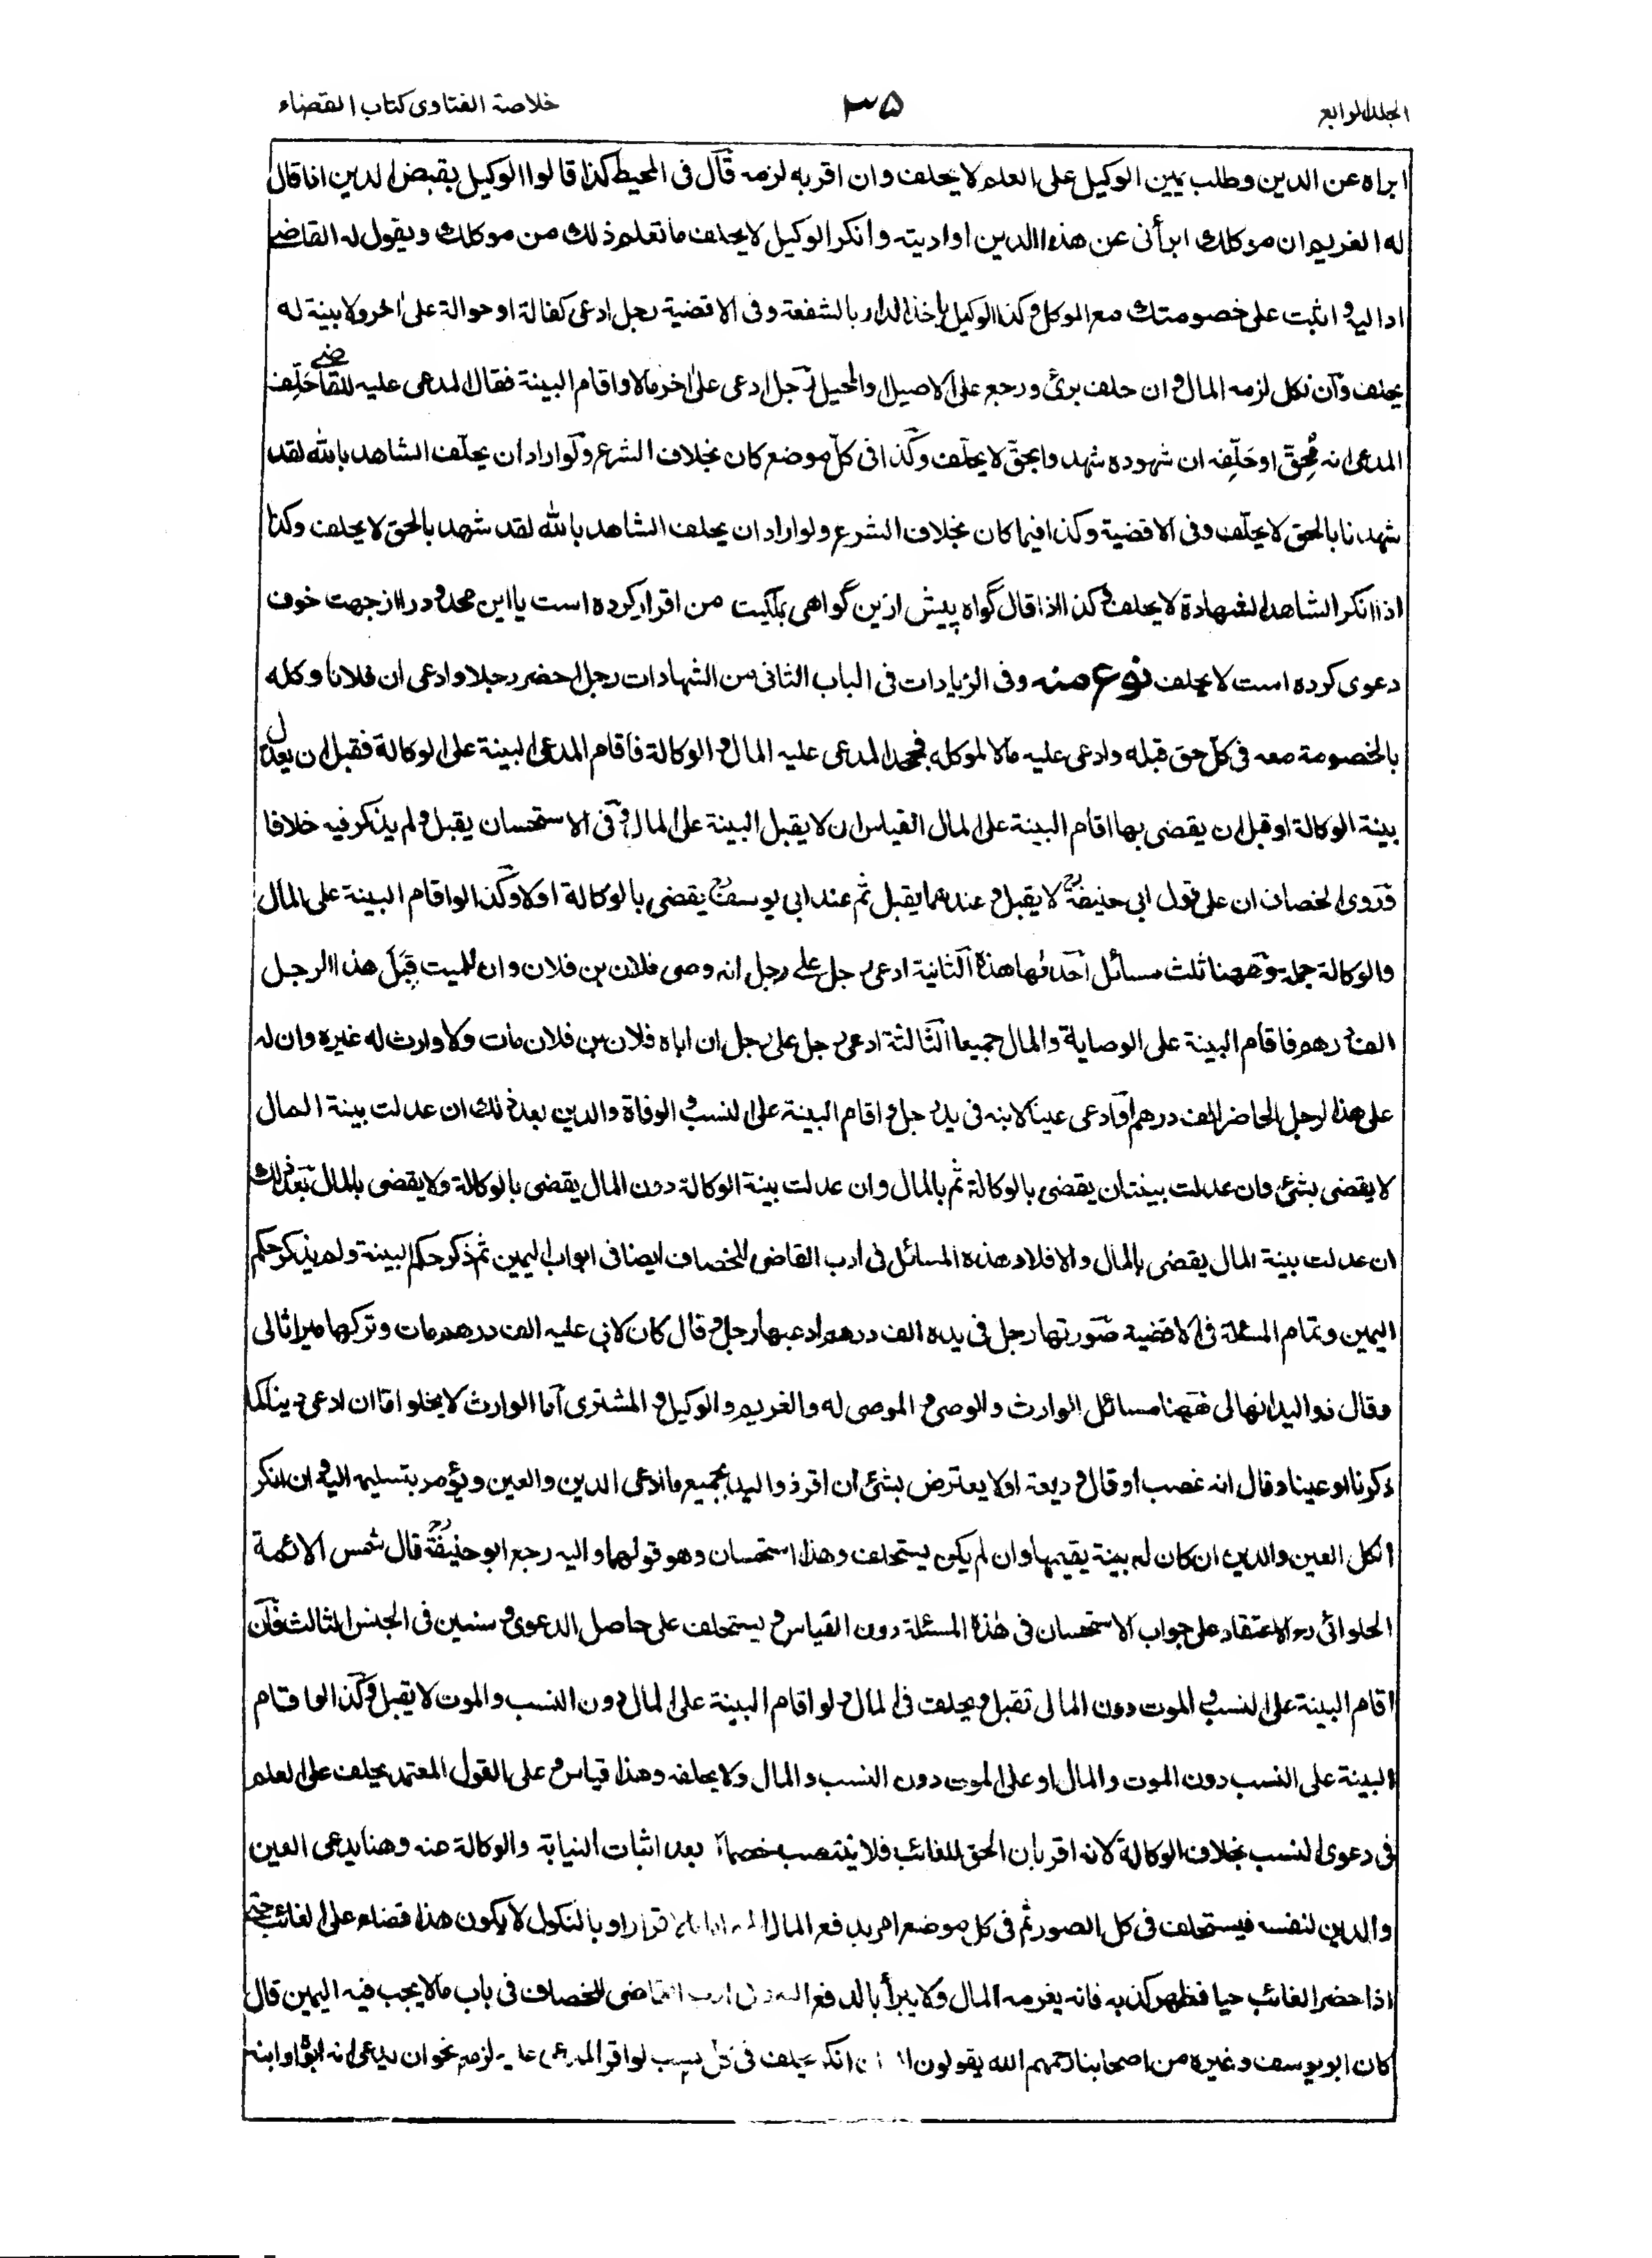 الجلد الرابع ۳۵ خلاصة الفتاوى كتاب القضاء
ابراه عن الدين وطلب يمين الوكيل على العلم لا يحلف وان اقر به لزمه قال فى المحيط كذا قالوا الوكيل بقبض الدين اذا قال
له الغريم ان موكلك ابرأنى عن هذا الدين او اديته وانكر الوكيل لا يحلف ما تعلم ذلك من موكلك ويقول له القاضى
اد اليه و اثبت على خصومتك مع الموكل وكذا الوكيل باخذ الدار بالشفعة وفى الاقضية رجل ادعى كفالة او حوالة على اخر ولا بينة له
يحلف وان نكل لزمه المال وان حلف برئ ورجع على الاصيل والمحيل رجل ادعى على اخر مالا واقام البينة فقال المدعى عليه للقاضى حَلِّف
المدعى انه مُحِقّ او حَلِّفه ان شهوده شهدوا بحق لا يحلّف وكذا فى كلّ موضع كان بخلاف الشرع ولو اراد ان يحلّف الشاهد بالله لقد
شهدنا بالحق لا يحلّف وفى الاقضية وكذا فيما كان بخلاف الشرع ولو اراد ان يحلف الشاهد بالله لقد شهد بالحق لا يحلف وكذا
اذا انكر الشاهد الشهادة لا يحلف وكذا اذا قال گواه پيش ازين گواهى بملكيت من اقرار كرده است يا اين محدود را از جهت خوف
دعوى كرده است لا يحلف نوع منه وفى الزيادات فى الباب الثانى من الشهادات رجل احضر رجلا وادعى ان فلانا وكله
بالخصومة معه فى كلّ حق قبله وادعى عليه مالا لموكله فجحد المدعى عليه المال والوكالة فاقام المدعى البينة على الوكالة فقبل ان يعدل
بينة الوكالة او قبل ان يقضى بها اقام البينة على المال القياس ان لا يقبل البينة على المال وفى الاستحسان يقبل ولم يذكر فيه خلافا
وروى الخصاف ان على قول ابى حنيفة رح لا يقبل وعندهما يقبل ثم عند ابى يوسف رح يقضى بالوكالة اولا وكذا لو اقام البينة على المال
والوكالة جملة وههنا ثلث مسائل احدٰها هذه الثانية ادعى رجل على رجل انه وصى فلان بن فلان وان للميت قِبَلَ هذا الرجل
الف درهم فاقام البينة على الوصاية والمال جميعا الثالثة ادعى رجل على رجل ان اباه فلان بن فلان مات ولا وارث له غيره وان له
على هذا الرجل الحاضر الف درهم او ادعى عينا لابنه فى يد رجل و اقام البينة على النسب و الوفاة والدين بعد ذلك ان عدلت بينة المال
لا يقضى بشئ وان عدلت بينتان يقضى بالوكالة ثم بالمال وان عدلت بينة الوكالة دون المال يقضى بالوكالة ولا يقضى بالمال بعد ذلك
ان عدلت بينة المال يقضى بالمال والا فلا وهذه المسائل فى ادب القاضى للخصاف ايضا فى ابواب اليمين ثم ذكر حكم البينة ولم يذكر حكم
اليمين وتمام المسئلة فى الاقضية صورتها رجل فى يده الف درهم ادعيها رجل و قال كان لابى عليه الف درهم مات وتركها ميراثا لى
وقال ذو اليد انها لى فههنا مسائل الوارث والوصى و الموصى له والغريم والوكيل و المشترى اما الوارث لا يخلو اما ان ادعى دينا كما
ذكرنا او عينا وقال انه غصب او قال وديعة او لا يعترض بشئ ان اقر ذو اليد بجميع ما ادعى الدين والعين ويؤمر بتسليمه اليه و ان انكر
الكل العين والدين ان كان له بينة يقيمها وان لم يكن يستحلف وهذا استحسان وهو قولهما واليه رجع ابو حنيفة رح قال شمس الائمة
الحلوائى رح الاعتقاد على جواب الاستحسان فى هٰذه المسئلة دون القياس و يستحلف على حاصل الدعوى وسنبين فى الجنس الثالث فان
اقام البينة على النسب و الموت دون المال تقبل ويحلف فى المال و لو اقام البينة على المال دون النسب والموت لا يقبل وكذا لو اقام
البينة على النسب دون الموت والمال او على الموت دون النسب والمال ولا يحلفه وهذا قياس و على القول المعتمد يحلف على العلم
فى دعوى النسب بخلاف الوكالة لانه اقر بان الحق للغائب فلا ينتصب خصما بعد اثبات النيابة والوكالة عنه وهنا يدعى العين
والدين لنفسه فيستحلف فى كل الصور ثم فى كل موضع امر بدفع المال اليه اما بالاقرار او بالنكول لا يكون هذا قضاء على الغائب حتى
اذا حضر الغائب حيا فظهر كذبه فانه يغرمه المال ولا يبرأ بالدفع اليه فى ادب القاضى للخصاف فى باب مالا يجب فيه اليمين قال
كان ابو يوسف وغيره من اصحابنا رحمهم الله يقولون ان انكر يحلف فى كل سبب لو اقر المدعى عليه لزمه نحو ان يدعى انه ابوه او ابنه